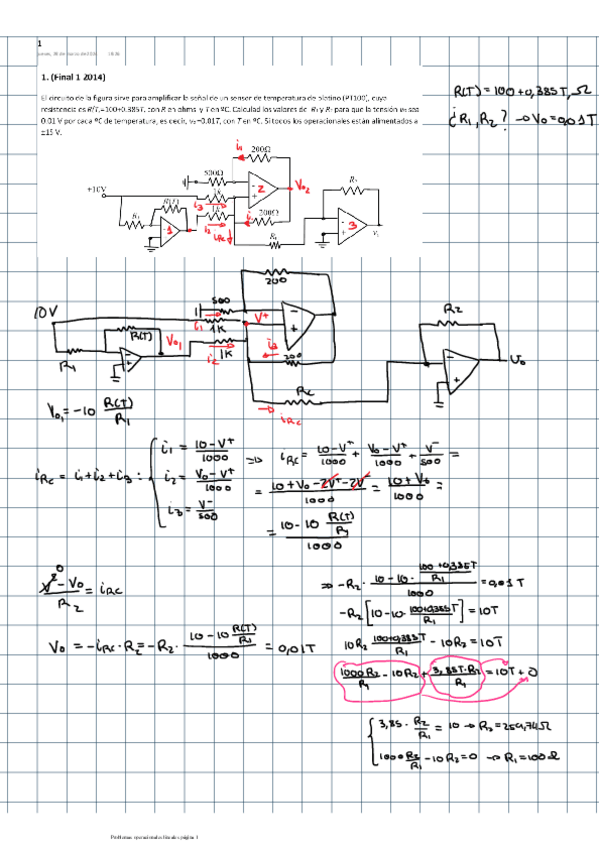 1
1. (Final 1 2014)
El circuito de la figura sirve para amplificar la señal de un sensor de temperatura de platino (PT100), cuya
resistencia es R(T)=100+0.385T, con R en ohms y T en ºC. Calculad los valores de R₁ y R₂ para que la tensión v₀ sea
0.01 V por cada ºC de temperatura, es decir, v₀=0.01T, con T en ºC. Si todos los operacionales están alimentados a
±15 V.
R(T) = 100+0,385T, Ω
¿R₁, R₂? → V₀=0,01T
i₁ 200Ω
500Ω
+10V
1k
R(T)
i₃
2
V₀₂
R₂
R₁
1
i₂
1k
200Ω
i
iRc
Rc
3
V₀
200
500
10V
i₁ 1K
V⁺
R₂
R(T)
V₀₁
R₁
i₂ 1K
i₃
200
V₀
Rc
iRc
V₀₁ = -10 R(T)/R₁
iRc = i₁+i₂+i₃ :
i₁ = (10-V⁺)/1000 => iRc = (10-V⁺)/1000 + (V₀-V⁺)/1000 + V⁻/500 =
i₂ = (V₀-V⁺)/1000 = (10+V₀-2V⁺-2V⁻)/1000 = (10+V₀)/1000 =
i₃ = V⁻/500
= (10-10 R(T)/R₁)/1000
(V⁻-V₀)/R₂ = iRc
0
V₀ = -iRc·R₂ = -R₂· (10-10 R(T)/R₁)/1000 = 0,01T
=> -R₂· (10-10· (100+0,385T)/R₁)/1000 = 0,01T
-R₂[10-10· (100+0,385T)/R₁] = 10T
10R₂ (100+0,385T)/R₁ - 10R₂ = 10T
1000R₂/R₁ - 10R₂ + 3,85T·R₂/R₁ = 10T + 0
3,85· R₂/R₁ = 10 → R₂ = 259,74Ω
1000 R₂/R₁ - 10R₂ = 0 → R₁ = 100Ω
Problemas operacionales lineales página 1